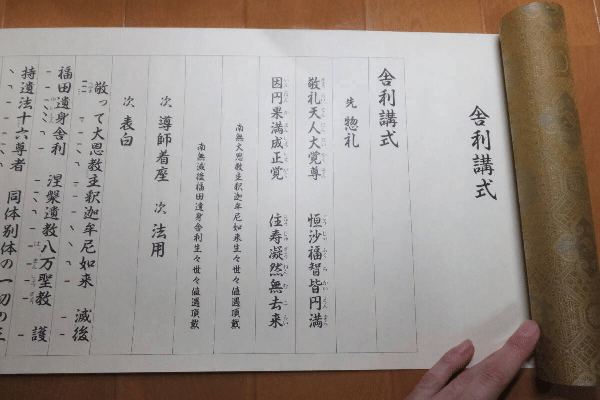 舎利講式
舎利講式
先 惣礼
敬礼天人大覚尊 恒沙福智皆円満
因円果満成正覚 住寿凝然無去来
南無大恩教主釈迦牟尼如来生々世々値遇頂戴
南無滅後福田遺身舎利生々世々値遇頂戴
次 導師着座 次 法用
次 表白
敬って大恩教主釈迦牟尼如来 滅後
福田遺身舎利 涅槃遺教八万聖教 護
持遺法十六尊者 同体別体の一切の三